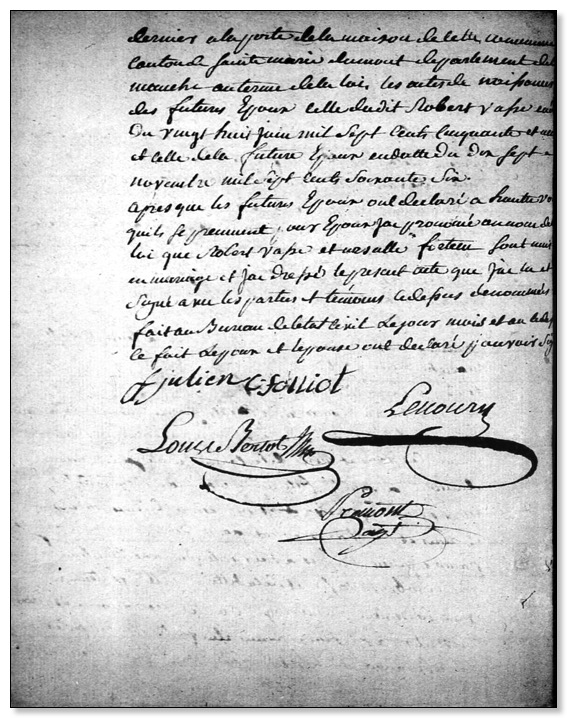 dernier a la porte de la maison de cette commune
canton de Sainte marie dumont departement de
manche au terme de la loi, les actes de naissances
des futurs Epoux celle dudit Robert vasse
Du vingt huit juin mil Sept Cents Cinquante et un
et celle de la future Epoux en datte du dix Sept
novembre mil Sept Cents Soixante Six
apres que les futurs Epoux ont declaré a haute
qu'ils se prennent pour Epoux j'ai prononcé au nom de
loi que Robert vasse et forteau Sont unis
en mariage et j'ai dressé le present acte que j'ai lu et
Signé avec les parties et temoins cidessus denommés
fait au Bureau de letat Civil Le jour mois et an
ce fait Lepoux et lepouse ont declaré
julien C folliot
Lenoury
Louis Bertot
fremont
agt